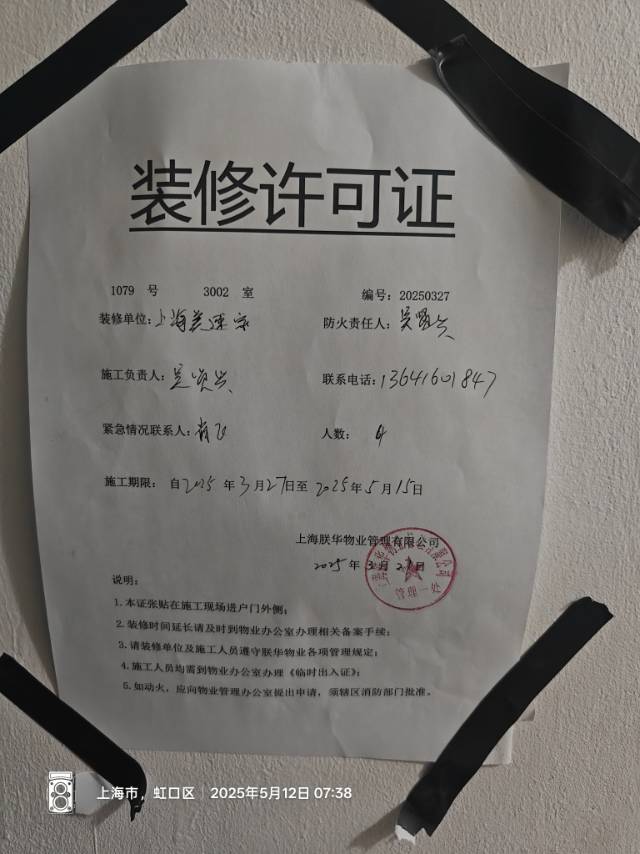 装修许可证
1079 号 3002 室 编号：20250327
装修单位：上海美 家 防火责任人：吴贤兴
施工负责人：吴贤兴 联系电话：13641601847
紧急情况联系人：肖飞 人数：4
施工期限：自2025年3月27日至2025年5月15日
上海朕华物业管理有限公司
2025年3月27日
管理一处
说明：
1. 本证张贴在施工现场进户门外侧；
2. 装修时间延长请及时到物业办公室办理相关备案手续；
3. 请装修单位及施工人员遵守朕华物业各项管理规定；
4. 施工人员均需到物业办公室办理《临时出入证》；
5. 如动火，应向物业管理办公室提出申请，须辖区消防部门批准。
上海市，虹口区 2025年5月12日 07:38